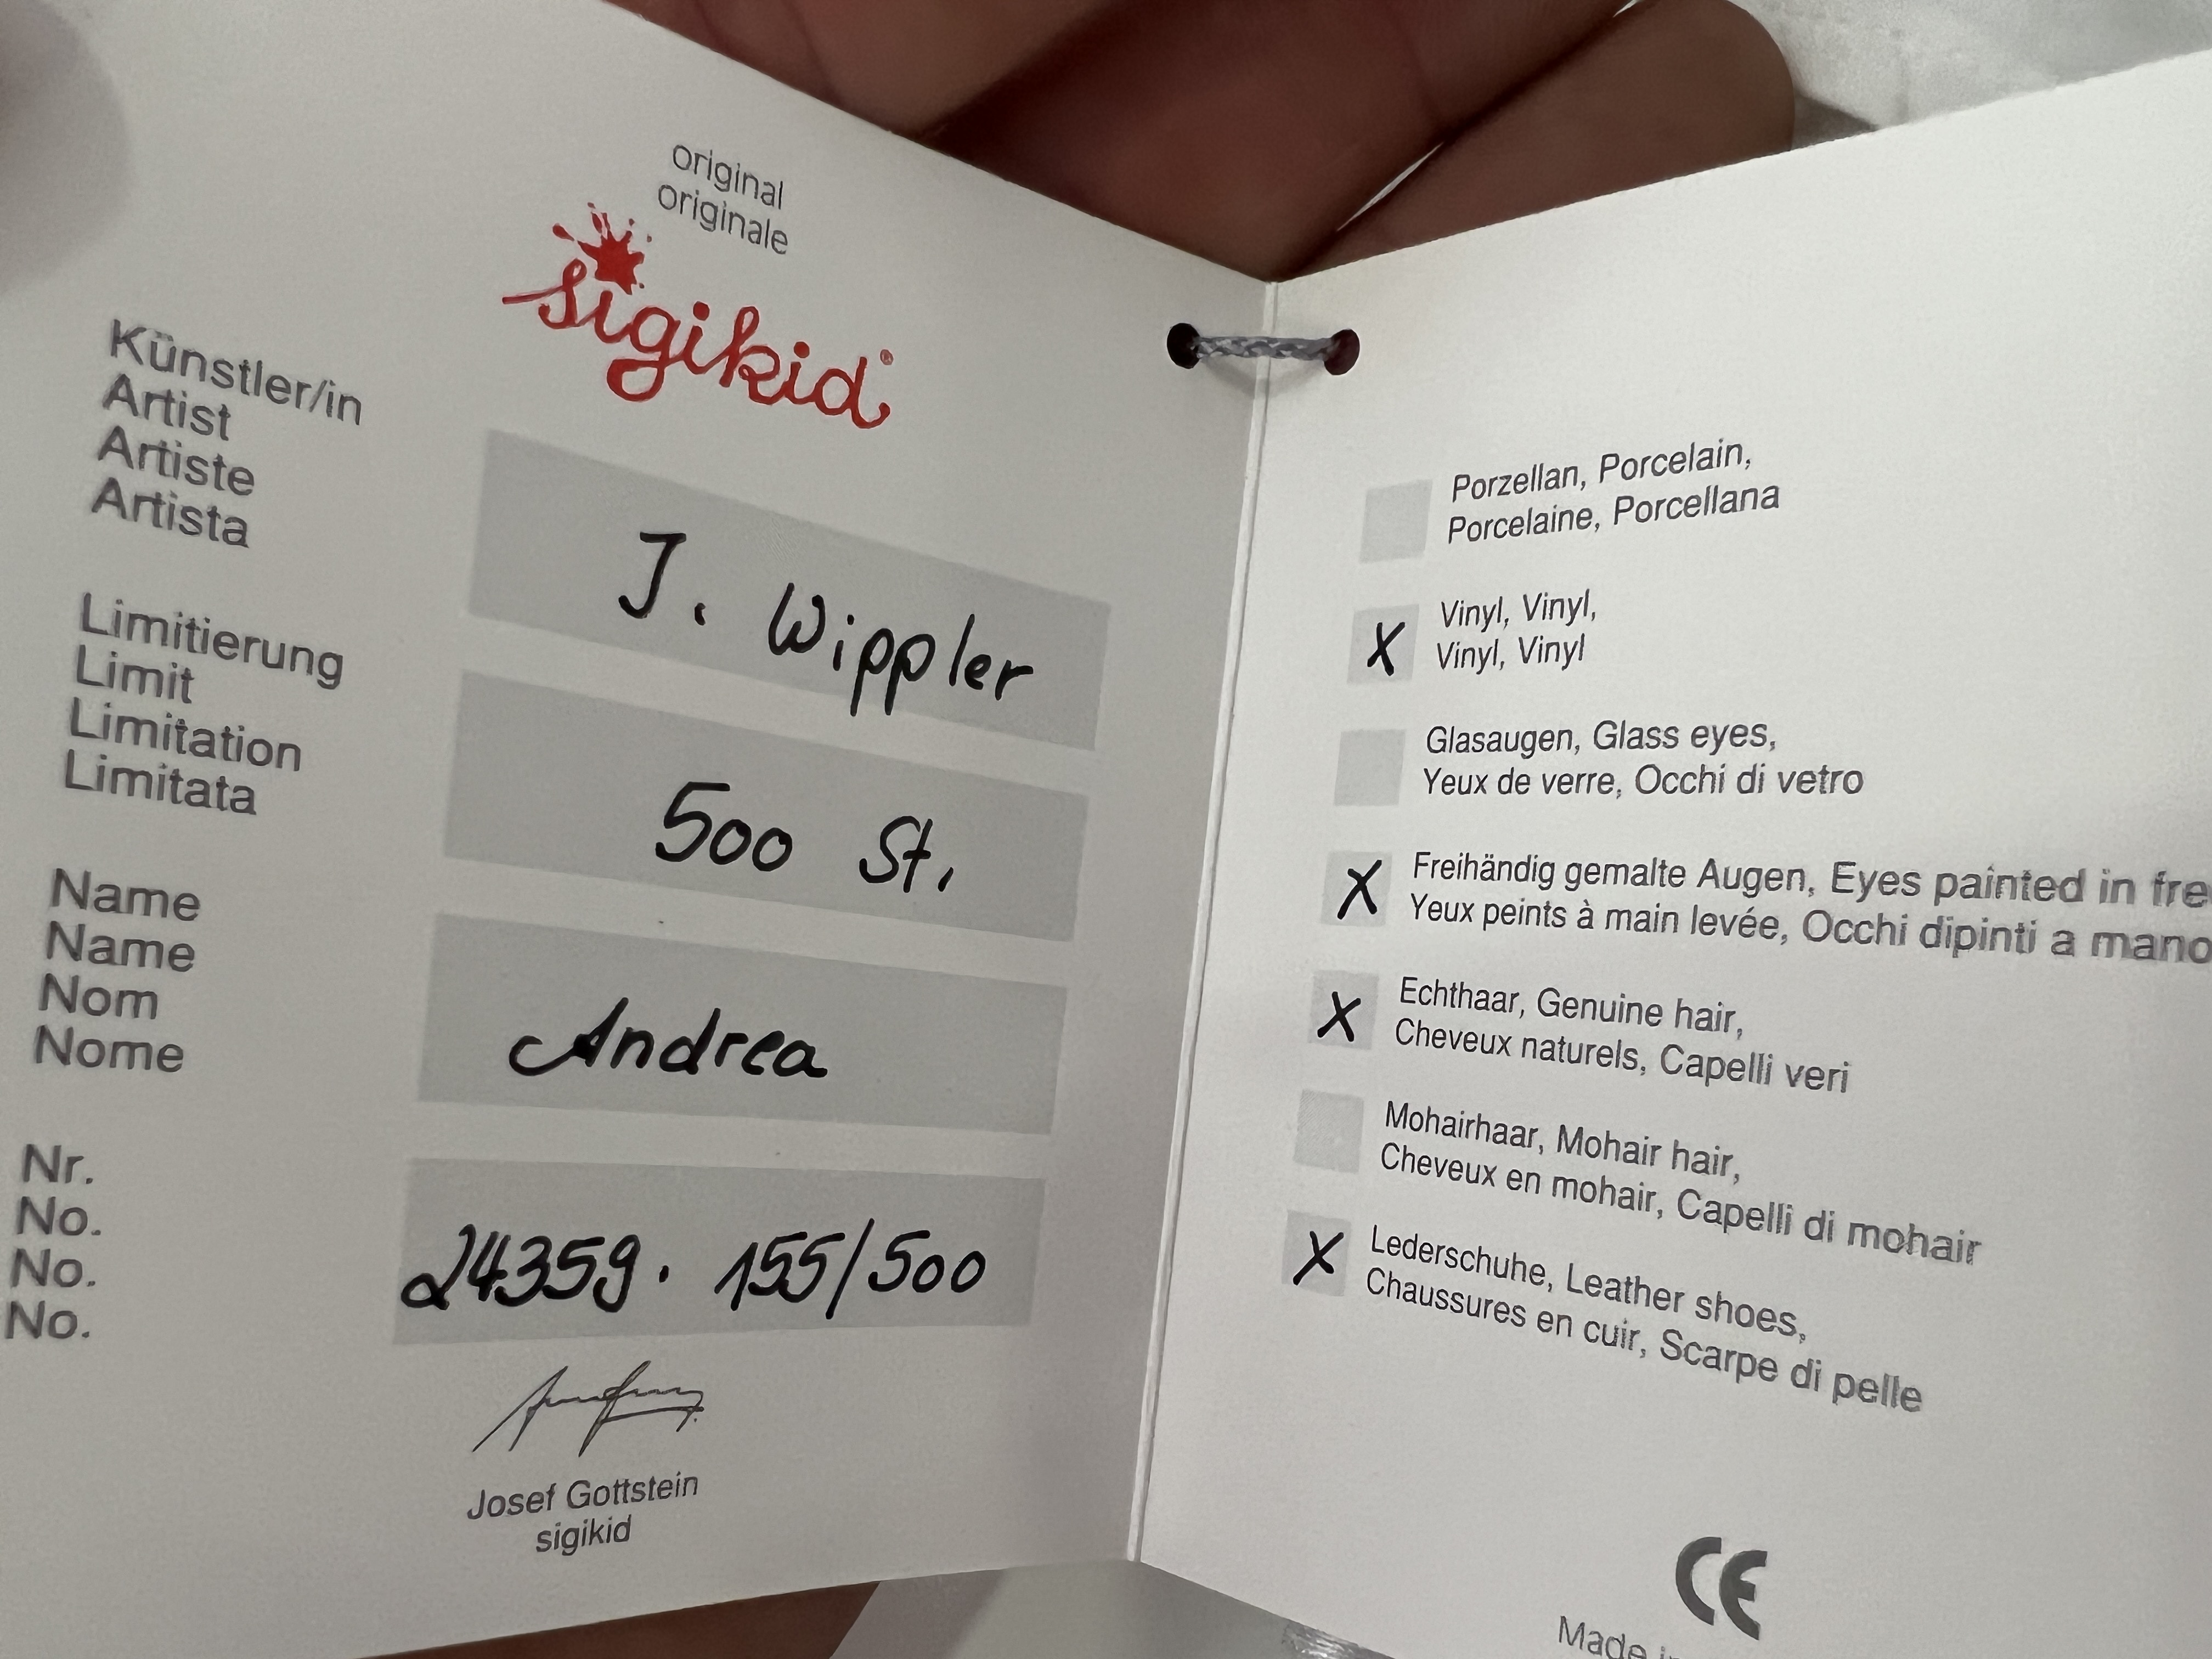 original
originale
sigikid®
Künstler/in
Artist
Artiste
Artista
J. Wippler
Limitierung
Limit
Limitation
Limitata
500 St.
Name
Name
Nom
Nome
Andrea
Nr.
No.
No.
No.
24359. 155/500
Josef Gottstein
sigikid
Porzellan, Porcelain,
Porcelaine, Porcellana
X Vinyl, Vinyl,
Vinyl, Vinyl
Glasaugen, Glass eyes,
Yeux de verre, Occhi di vetro
X Freihändig gemalte Augen, Eyes painted in fre
Yeux peints à main levée, Occhi dipinti a mano
X Echthaar, Genuine hair,
Cheveux naturels, Capelli veri
Mohairhaar, Mohair hair,
Cheveux en mohair, Capelli di mohair
X Lederschuhe, Leather shoes,
Chaussures en cuir, Scarpe di pelle
CE
Made